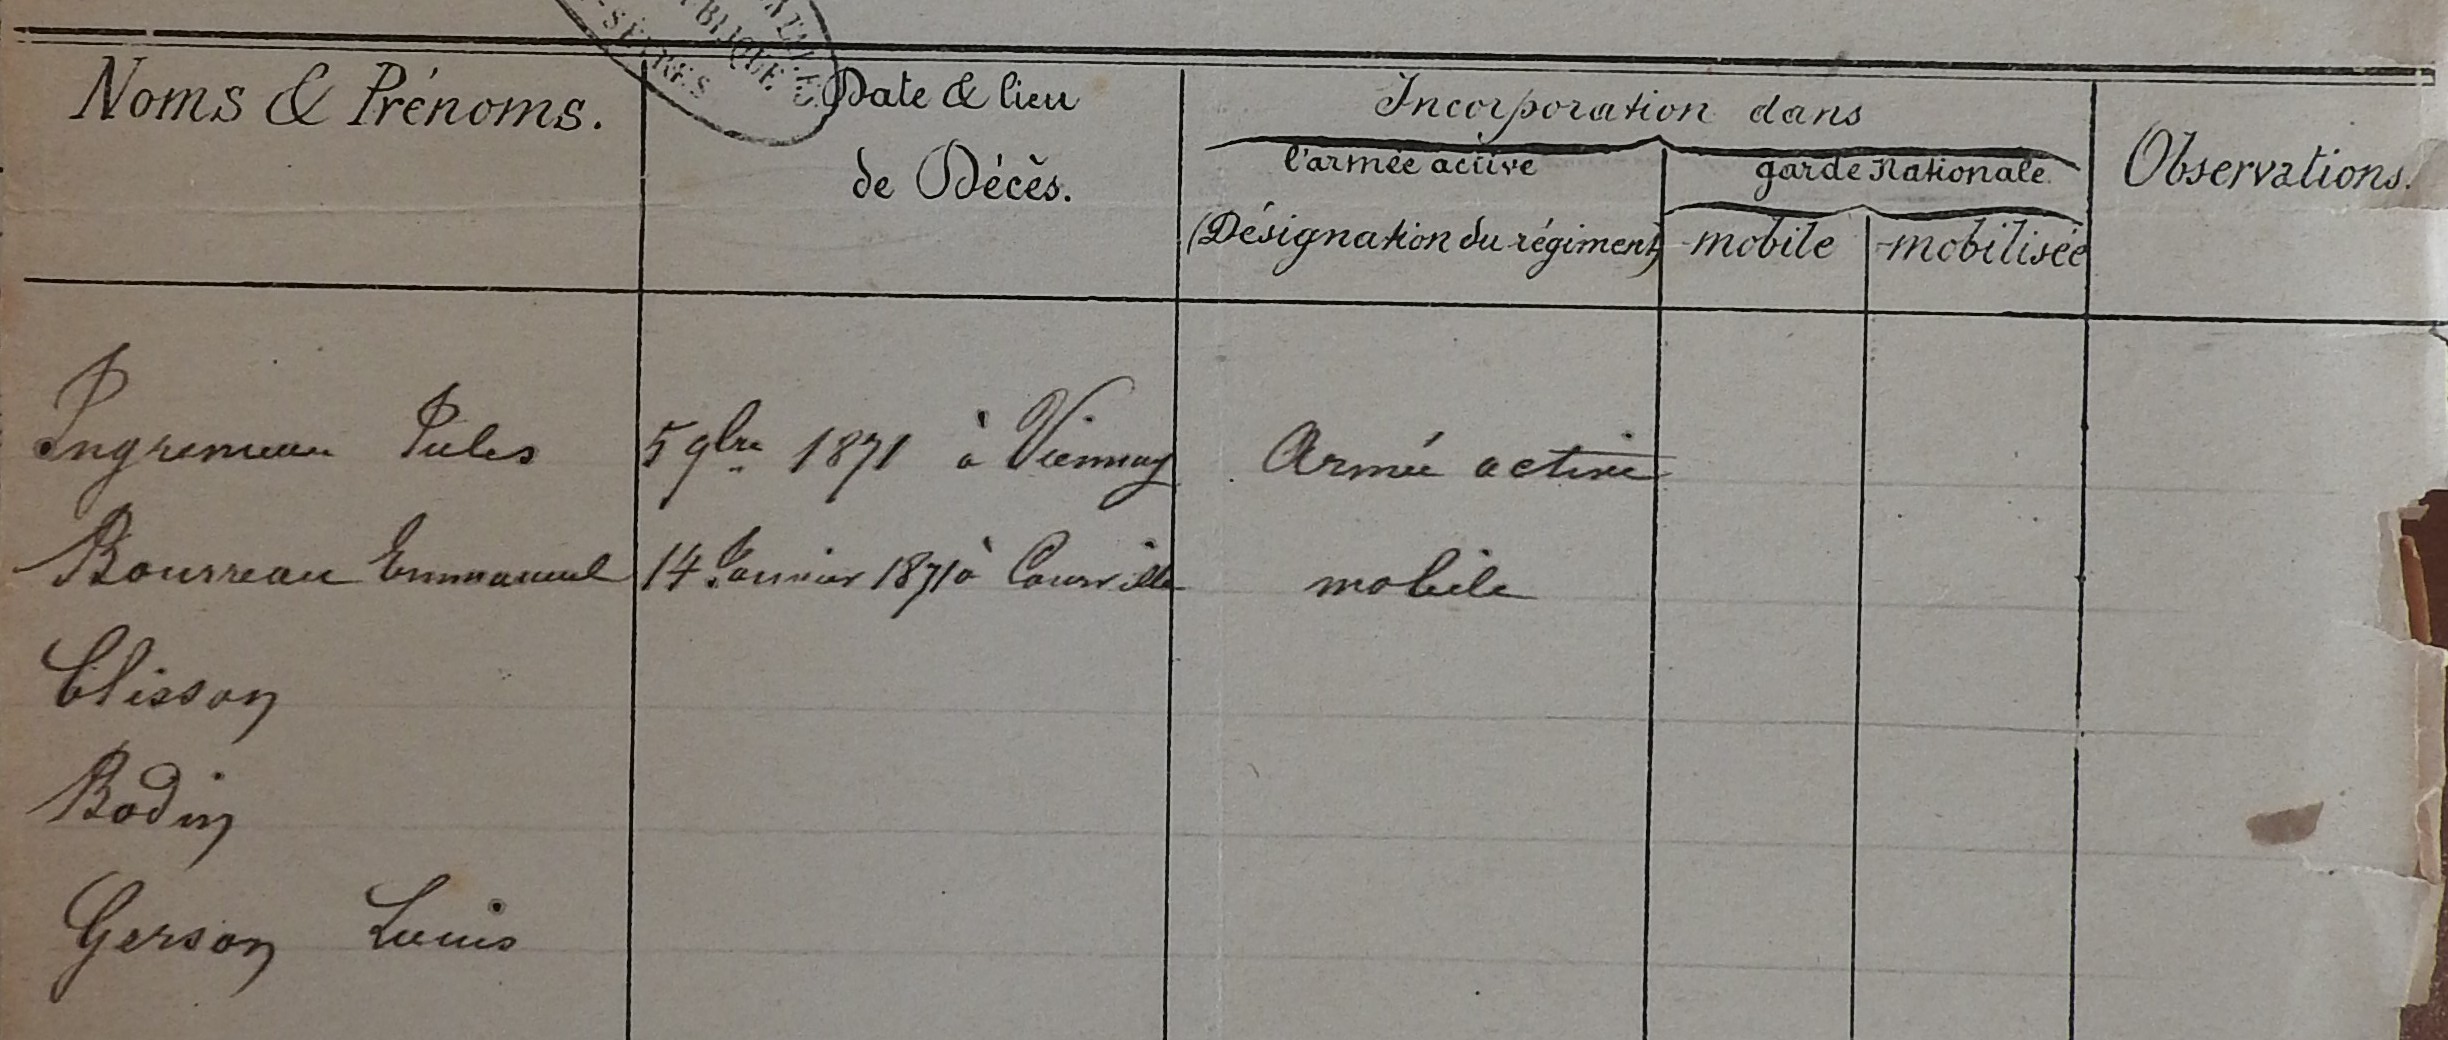 Noms & Prénoms.
Date & lieu
de Décès.
Incorporation dans
l'armée active
garde Nationale
(Désignation du régiment)
mobile
mobilisée
Observations.
Ingremeau Jules 5 9bre 1871 à Viennay Armée active
Bourreau Emmanuel 14 Janvier 1871 à Courville mobile
Clisson
Bodin
Gerson Louis